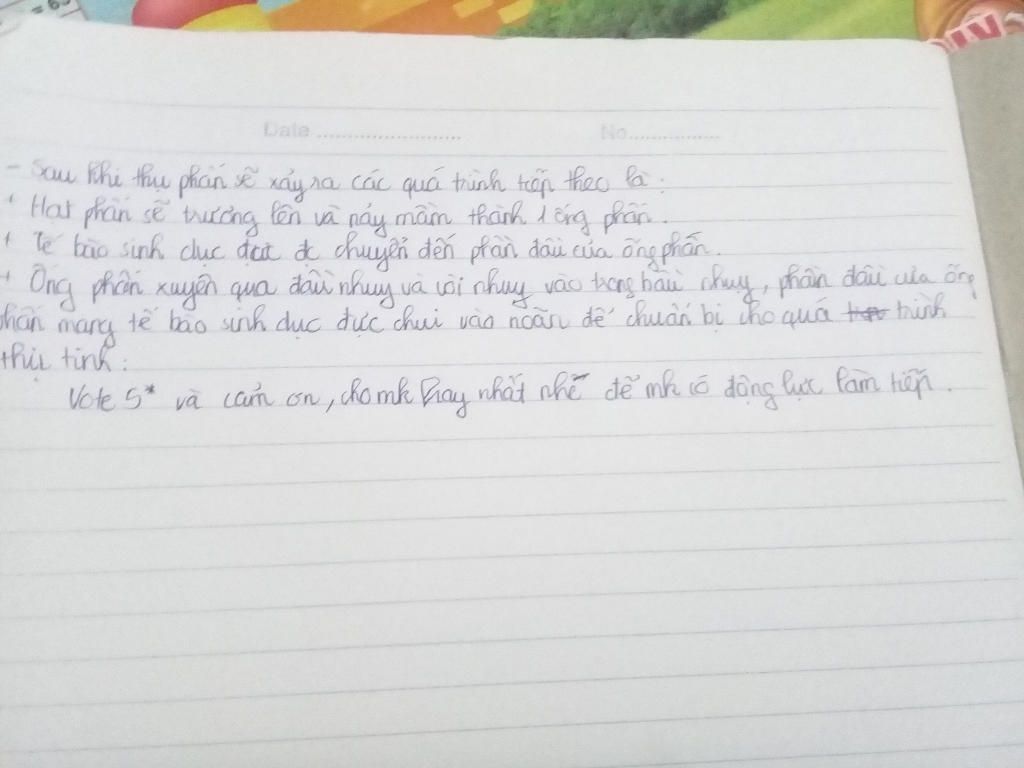 = 65
Date ........................ No................
- Sau khi thụ phấn sẽ xảy ra các quá trình tiếp theo là:
+ Hạt phấn sẽ trương lên và nảy mầm thành 1 ống phấn.
+ Tế bào sinh dục đực đc chuyển đến phần đầu của ống phấn.
+ Ống phấn xuyên qua đầu nhụy và vòi nhụy vào trong bầu nhụy, phần đầu của ống
phấn mang tế bào sinh dục đực chui vào noãn để chuẩn bị cho quá trình
thụ tinh.
Vote 5* và cảm ơn, cho mk hay nhất nhé để mk có động lực làm tiếp.